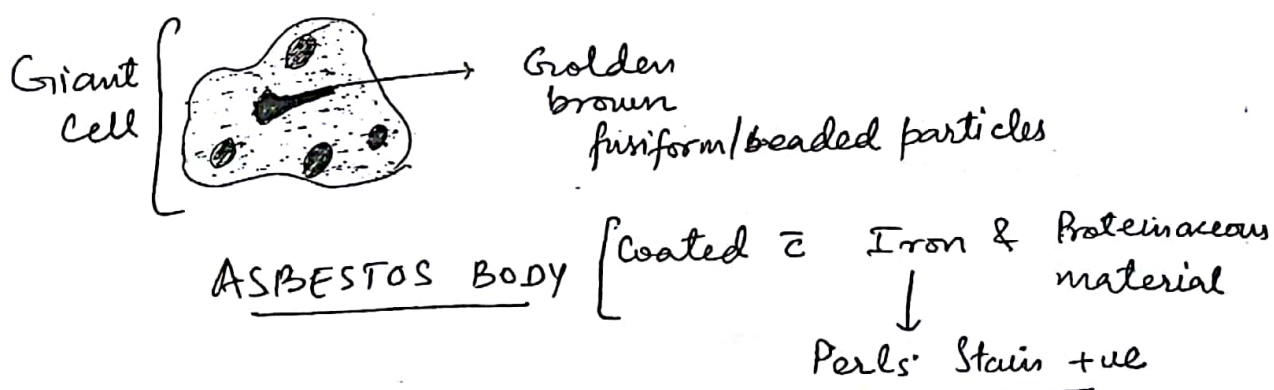 Giant
Cell
Golden
brown
fusiform/beaded particles
ASBESTOS BODY
Coated c̄ Iron & Proteinaceous
material
Perls' Stain +ve